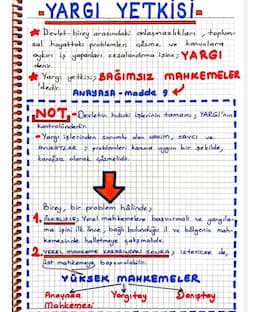 - YARGI YETKİSİ -
★ Devlet-birey arasındaki anlaşmazlıkları, toplum-
sal hayattaki problemleri çözme ve kanunlara
aykırı iş yapanları cezalandırma işine; YARGI
denir.
★ Yargı yetkisi; BAĞIMSIZ MAHKEMELER
'dedir.
ANAYASA - madde 9
NOT - Devletin hukuk işlerinin tamamı, YARGI'nın
kontrolündedir.
- Yargı işlerinden sorumlu olan HAKİM, SAVCI ve
AVUKATLAR; problemleri kanuna uygun bir şekilde,
tarafsız olarak çözmelidir.
Birey, bir problem hâlinde;
1. ÖNCELİKLE; Yerel mahkemelere başvurmalı ve yargıla-
ma işini ilk önce, bağlı bulunduğu il ve bölgenin mah-
kemesinde halletmeye çalışmalıdır.
2. YEREL MAHKEME KARARINDAN SONRA; isterse de,
üst mahkemeye başvurabilir.
YÜKSEK MAHKEMELER
Anayasa Mahkemesi
Yargıtay
Danıştay